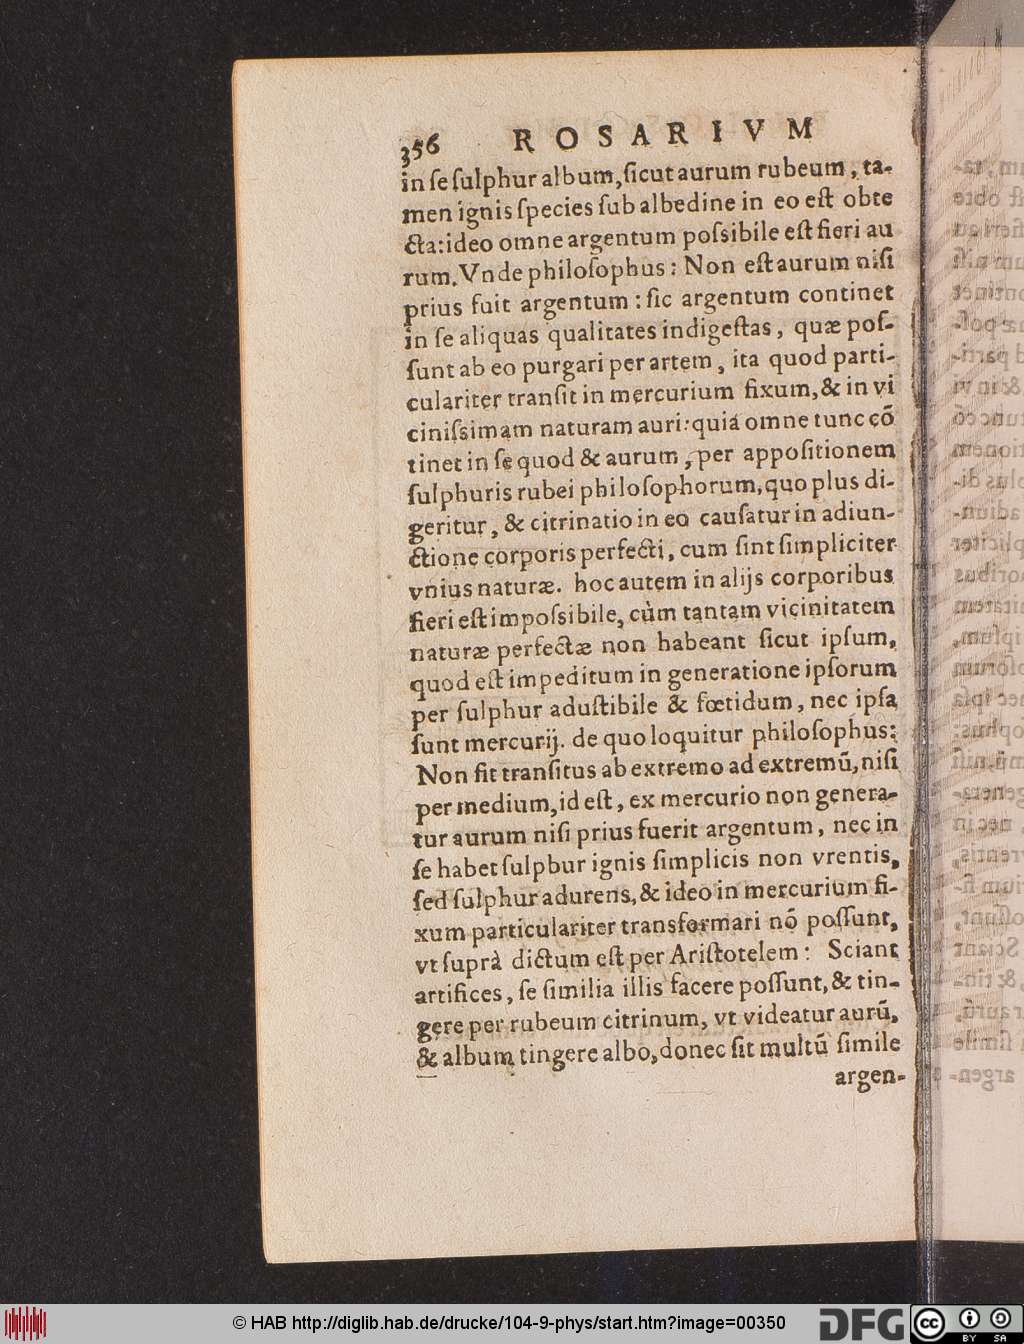 356 ROSARIVM
in se ſulphur album, ſicut aurum rubeum, ta-
men ignis ſpecies ſub albedine in eo eſt obte
cta: ideo omne argentum poſsibile eſt fieri au
rum. Vnde philoſophus: Non eſt aurum niſi
prius fuit argentum: ſic argentum continet
in ſe aliquas qualitates indigeſtas, quæ poſ-
ſunt ab eo purgari per artem, ita quod parti-
culariter tranſit in mercurium fixum, & in vi
ciniſsimam naturam auri: quia omne tunc cō
tinet in ſe quod & aurum, per appoſitionem
ſulphuris rubei philoſophorum, quo plus di-
geritur, & citrinatio in eo cauſatur in adiun-
ctione corporis perfecti, cum ſint ſimpliciter
vnius naturæ. hoc autem in alijs corporibus
fieri eſt impoſsibile, cùm tantam vicinitatem
naturæ perfectæ non habeant ſicut ipſum,
quod eſt impeditum in generatione ipſorum
per ſulphur aduſtibile & fœtidum, nec ipſa
ſunt mercurij. de quo loquitur philoſophus:
Non fit tranſitus ab extremo ad extremū, niſi
per medium, id eſt, ex mercurio non genera-
tur aurum niſi prius fuerit argentum, nec in
ſe habet ſulpbur ignis ſimplicis non vrentis,
ſed ſulphur adurens, & ideo in mercurium fi-
xum particulariter transformari nō poſſunt,
vt ſuprà dictum eſt per Ariſtotelem: Sciant
artifices, ſe ſimilia illis facere poſſunt, & tin-
gere per rubeum citrinum, vt videatur aurū,
& album tingere albo, donec ſit multū ſimile
argen-
© HAB http://diglib.hab.de/drucke/104-9-phys/start.htm?image=00350
DFG
cc BY SA